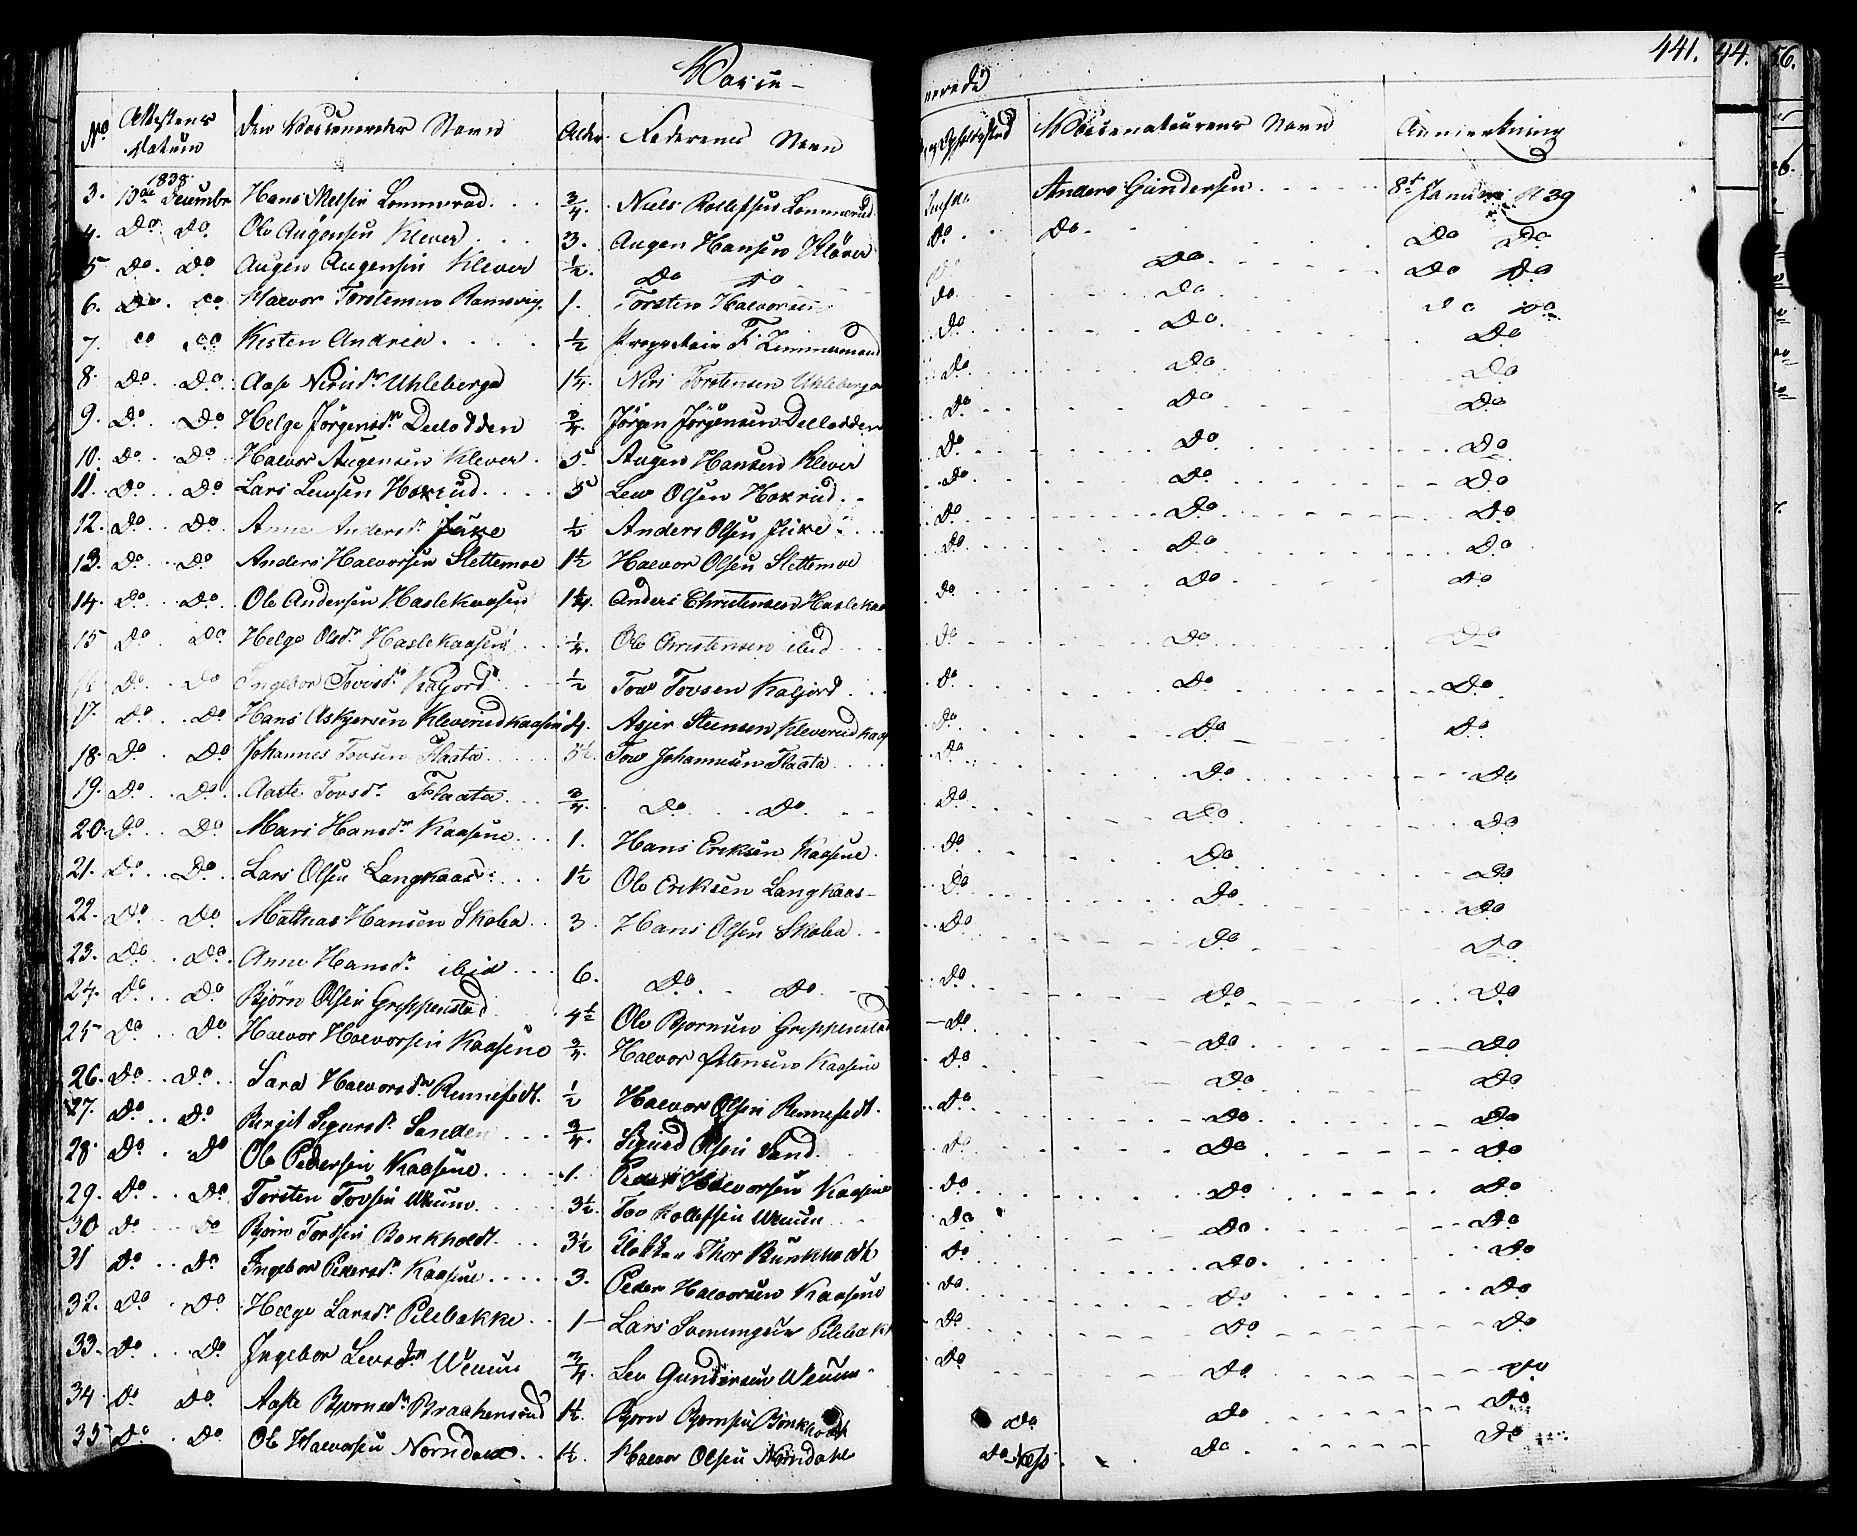 441. 44. 56.
Vaccinerede
No Attestens Datum den Vaccineredes Navn Alder Faderens Navn Opholdssted Vaccinateurens Navn Anmærkning
3. 1838 13de December Hans Nielsen Lommerud 3/4. Niels Rollefsen Lommerud Anders Gundersen 8de Januar 1839
4. Do Do. Ole Augensen Klever 3. Augen Hansen Kløver Do Do Do Do
5 Do. Do Augen Augensen Klever 1/2. Do Do Do Do Do Do
6. Do. Do Halvor Torstensen Ramsvig. 1. Torsten Halvorsen Do Do Do Do
7. Do Do. Kisten Andrea 1/2 F. Zimmermand Do Do Do
8. Do. Do. Aase Nirisdr Uhleberga 1 1/4. Niri Torstensen Uhleberga Do. Do Do
9. Do. Do. Helge Jørgensdr Delodden 3/4. Jørgen Jørgensen Dellodden Do Do Do
10. Do. Do. Halvor Augensen Klever 5. Augen Hansen Klever Do Do Do
11. Do. Do. Lars Lewsen Hoxrud 5 Lew Olsen Hoxrud. Do Do Do
12. Do. Do. Anne Andersdr Juve 1/2 Anders Olsen Juve Do Do Do
13. Do. Do Anders Halvorsen Slettemoe 1 1/2 Halvor Olsen Slettemoe Do Do Do
14. Do. Do. Ole Andersen Haslekaasen 1 1/4. Anders Christensen Haslekaa Do Do Do
15 Do Do. Helge Olsdr Haslekaasen 1/4. Ole Christensen ibid Do Do Do
16 Do. Do Ingebor Tovsdr Kasjord 1/2 Tow Tovsen Kasjord. Do Do Do
17. Do Do. Hans Askjersen Kleverudkaasen 4. Asjer Steensen Kleverudkaas Do Do Do
18. Do. Do. Johannes Tovsen Flaata 5 1/2. Tow Johannesen Flaata Do Do Do
19. Do. Do. Aaste Tovsdr Flaata 3/4. Do Do. Do Do Do
20. Do. Do Mari Hansdr Kaasene 1. Hans Eriksen Kaasene. Do Do Do
21. Do. Do. Lars Olsen Langkaas 1 1/2 Ole Eriksen Langkaas Do Do Do
22. Do. Do Mathias Hansen Skoba 3 Hans Olsen Skoba Do Do Do
23. Do. Do. Anne Hansdr ibid 6. Do Do. Do Do Do
24. Do. Do. Bjørn Olsen Groppenstad 4 1/2 Ole Bjornsen Groppenstad Do Do Do
25 Do. Do. Halvor Halvorsen Kaasene 3/4. Halvor Kaasene Do Do Do
26. Do. Do. Sara Halvorsdr Rennefedt. 1/2 Halvor Olsen Rennefedt. Do Do Do
27. Do. Do Birgit Sigursdr Sanden 3/4. Sigurd Olsen Sand. Do Do Do
28. Do. Do Ole Pedersen Kaasene. 1. Peder Halvorsen Kaasene Do Do Do
29. Do. Do. Torsten Tovsen Weum. 3 1/2. Tov Rollefsen Weum Do Do Do
30 Do Do Bjørn Torsen Bonkholdt. 3 1/2 Klokker Thor Bunkholdt Do Do. Do
31 Do. Do. Ingebor Pedersdr Kaasene 3. Peder Halvorsen Kaasene Do Do Do
32. Do. Do. Helge Larsdr Pilebakke 1 Lars Pilebakk Do Do Do
33. Do. Do. Ingebor Levsdr Weum 3/4 Lev Gundersen Weum Do Do Do
34 Do Do. Aaste Bjørnsdr Braakensrud 1 1/2. Bjorn Bjornsen Bonkholdt Do Do Do
35 Do. Do. Ole Halvorsen Norndal 1 1/2. Halvor Olsen Norndale Do Do Do